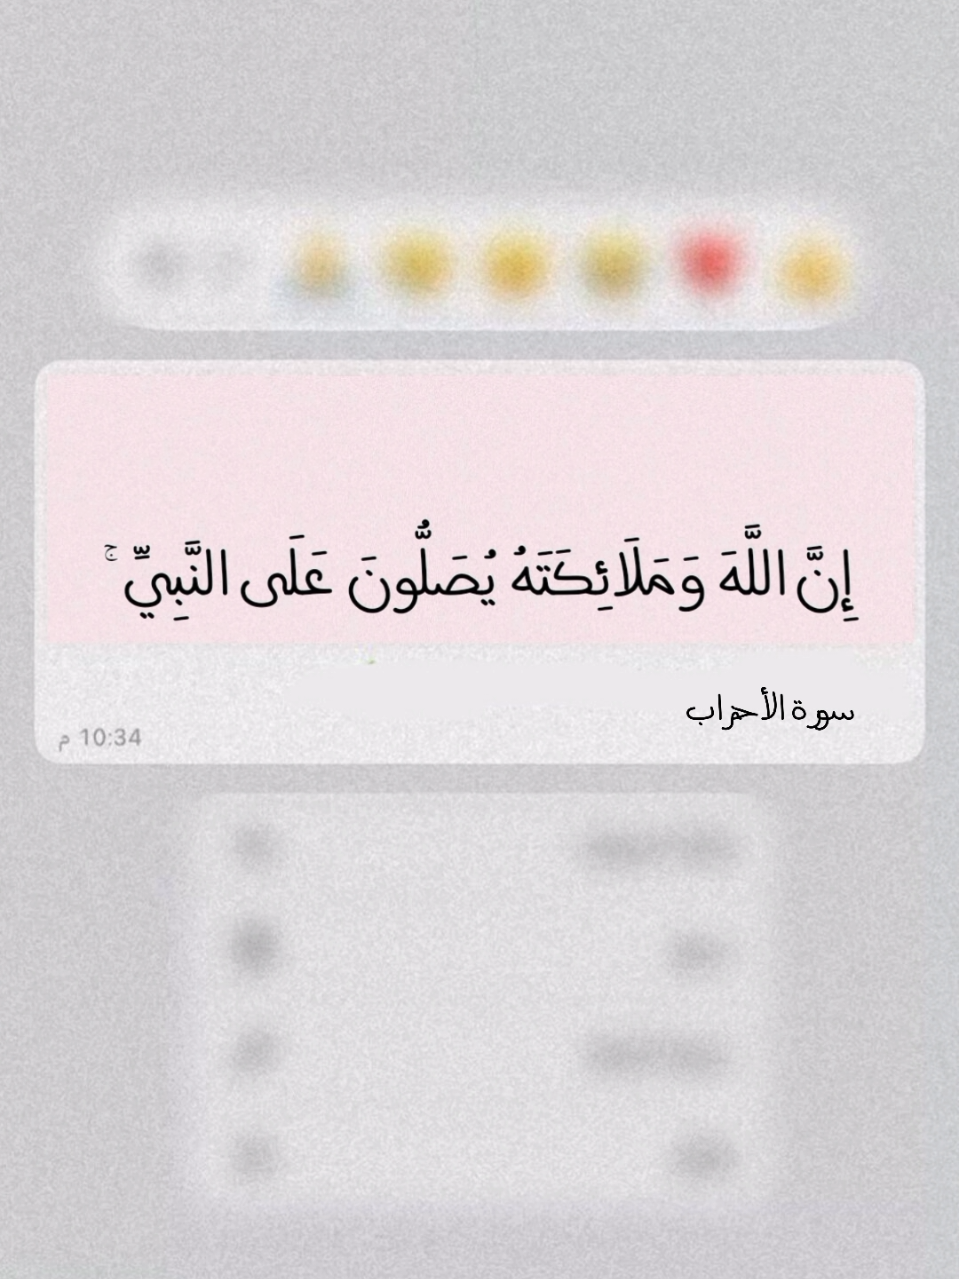 إِنَّ اللَّهَ وَمَلَائِكَتَهُ يُصَلُّونَ عَلَى النَّبِيِّ ۚ
سورة الأحزاب
10:34 م